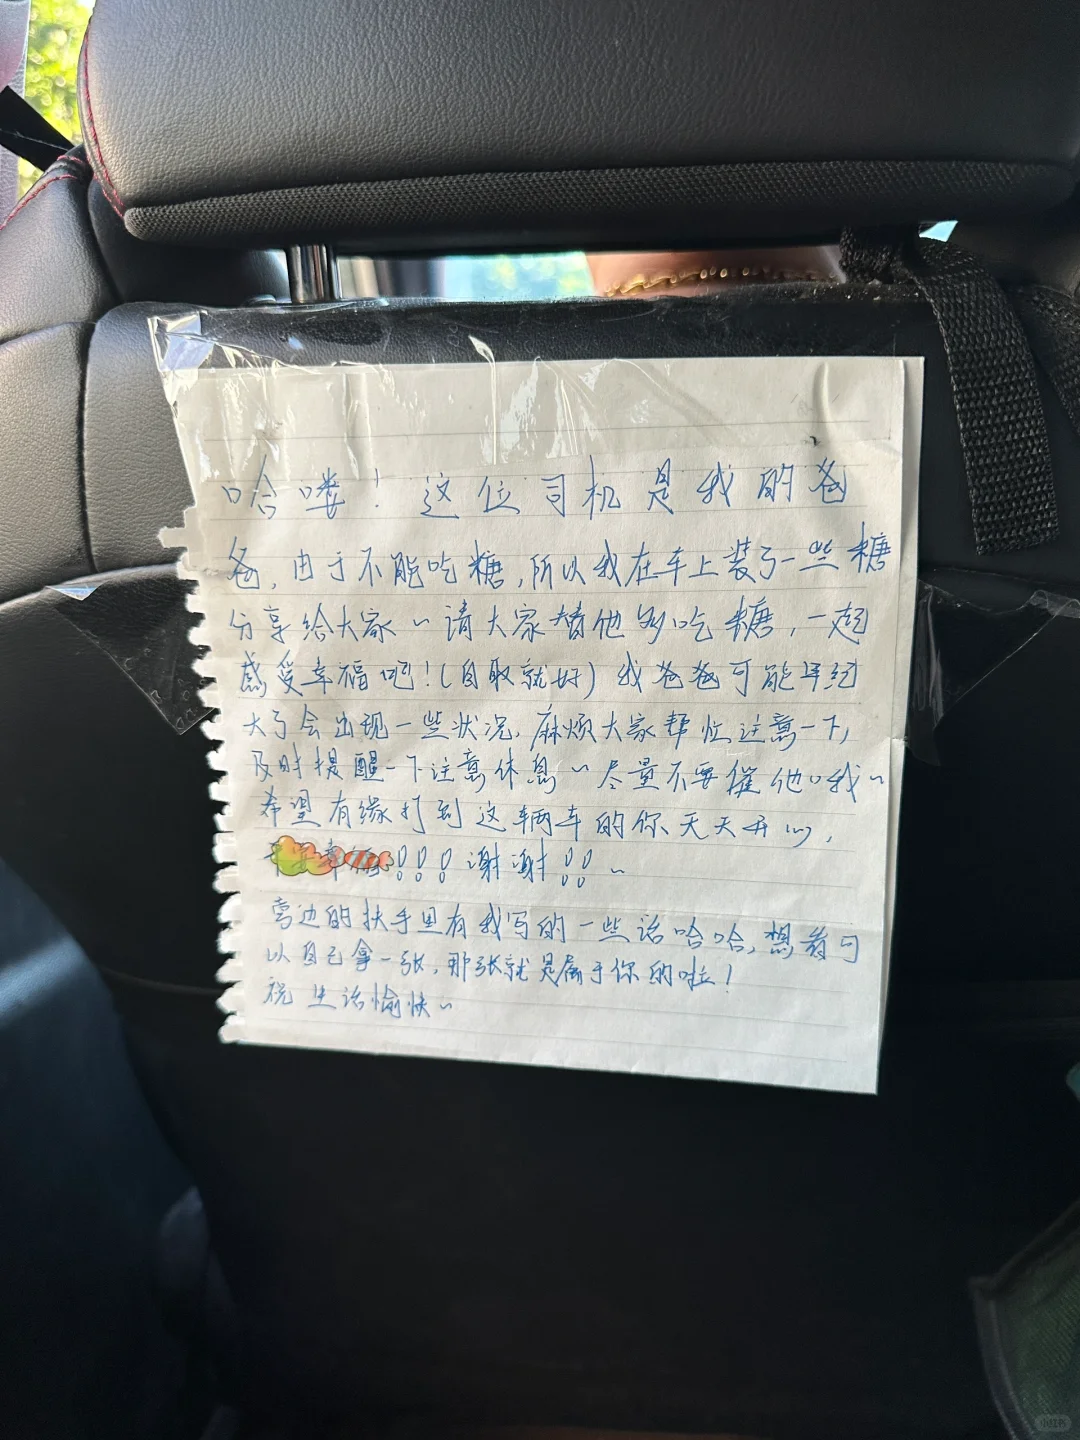 哈喽！这位司机是我的爸
爸，由于不能吃糖，所以我在车上装了一些糖
分享给大家～请大家替他多吃糖，一起
感受幸福吧！(自取就好)我爸爸可能年纪
大了会出现一些状况，麻烦大家帮忙注意一下，
及时提醒一下注意休息～尽量不要催他哦～
希望有缘打到这辆车的你天天开心，
！！！谢谢！！～
旁边的扶手里有我写的一些话哈哈，想看可
以自己拿一张，那张就是属于你的啦！
祝生活愉快～
小红书